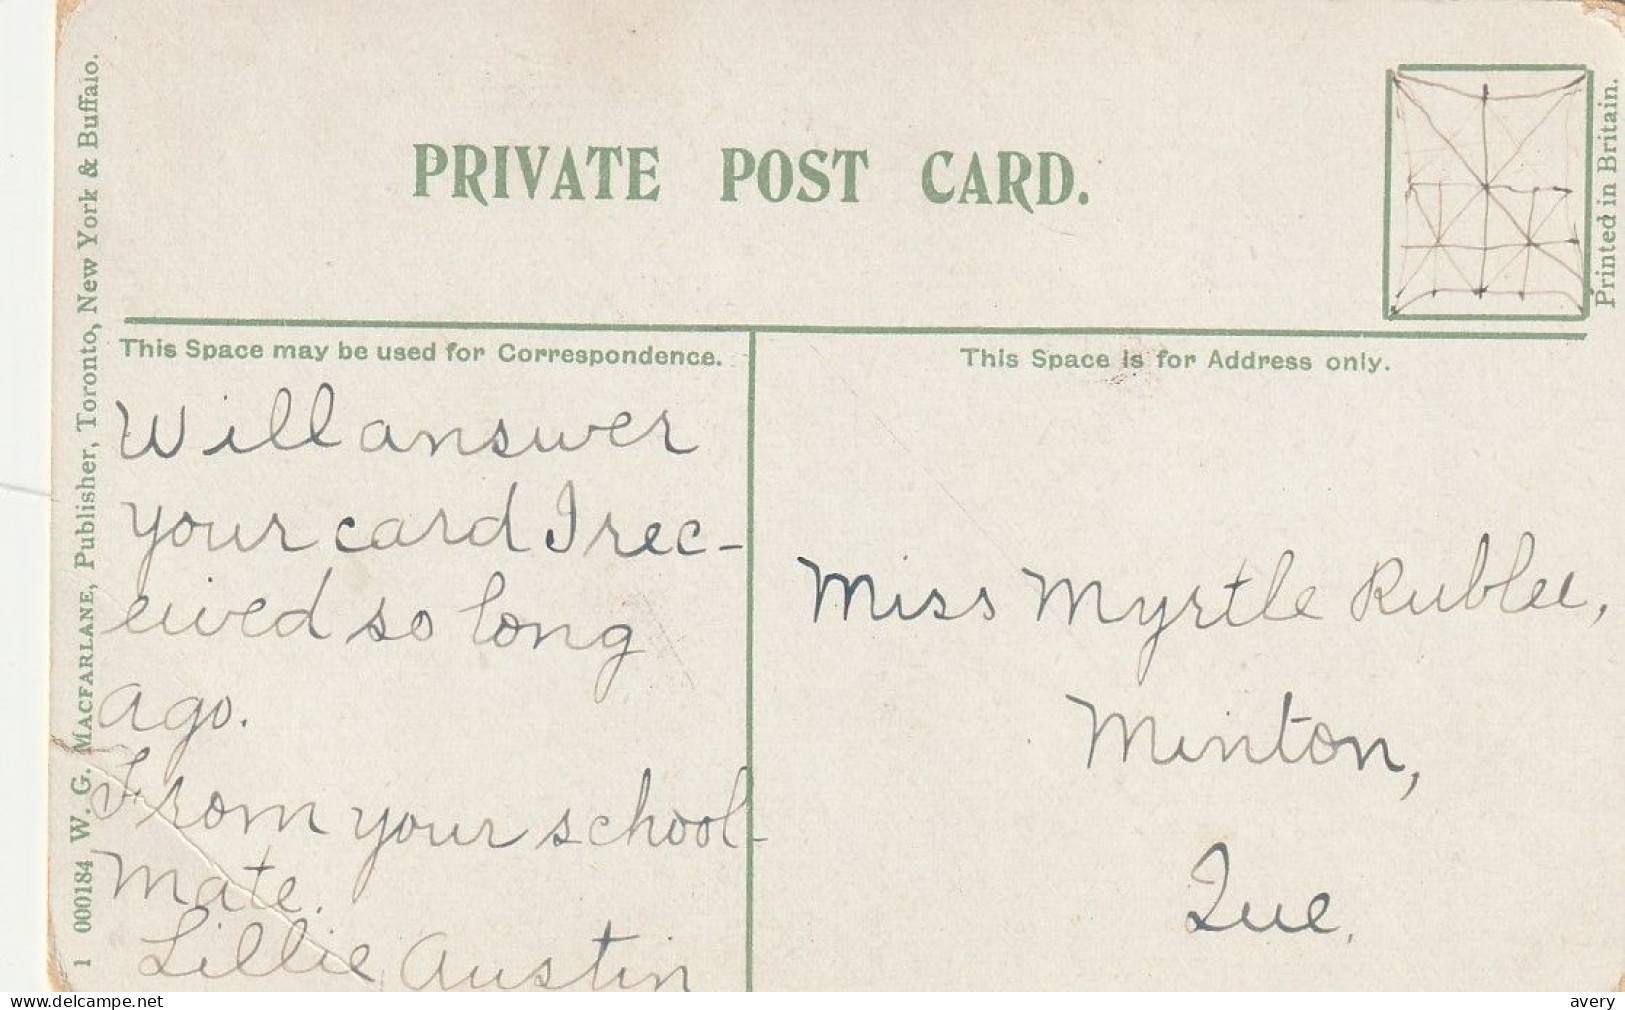 PRIVATE POST CARD.
Printed in Britain.
1 000184 W. G. MACFARLANE, Publisher, Toronto, New York & Buffalo.
This Space may be used for Correspondence.
Will answer
your card I rec-
eived so long
ago.
From your school-
mate.
Lillie Austin
This Space is for Address only.
Miss Myrtle Rublee,
Minton,
Que.
www.delcampe.net
avery